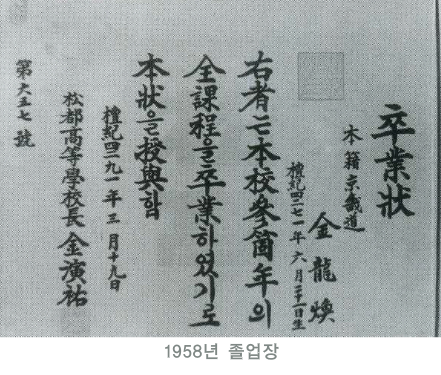 卒業狀
本籍 京畿道
金龍煥
檀紀四二七一年 六月二十一日生
右者는本校參箇年의
全課程을卒業하였기로
本狀을授與함
檀紀四二九一年 三月十九日
松都高等學校長 金演祐
第六五七號
1958년 졸업장